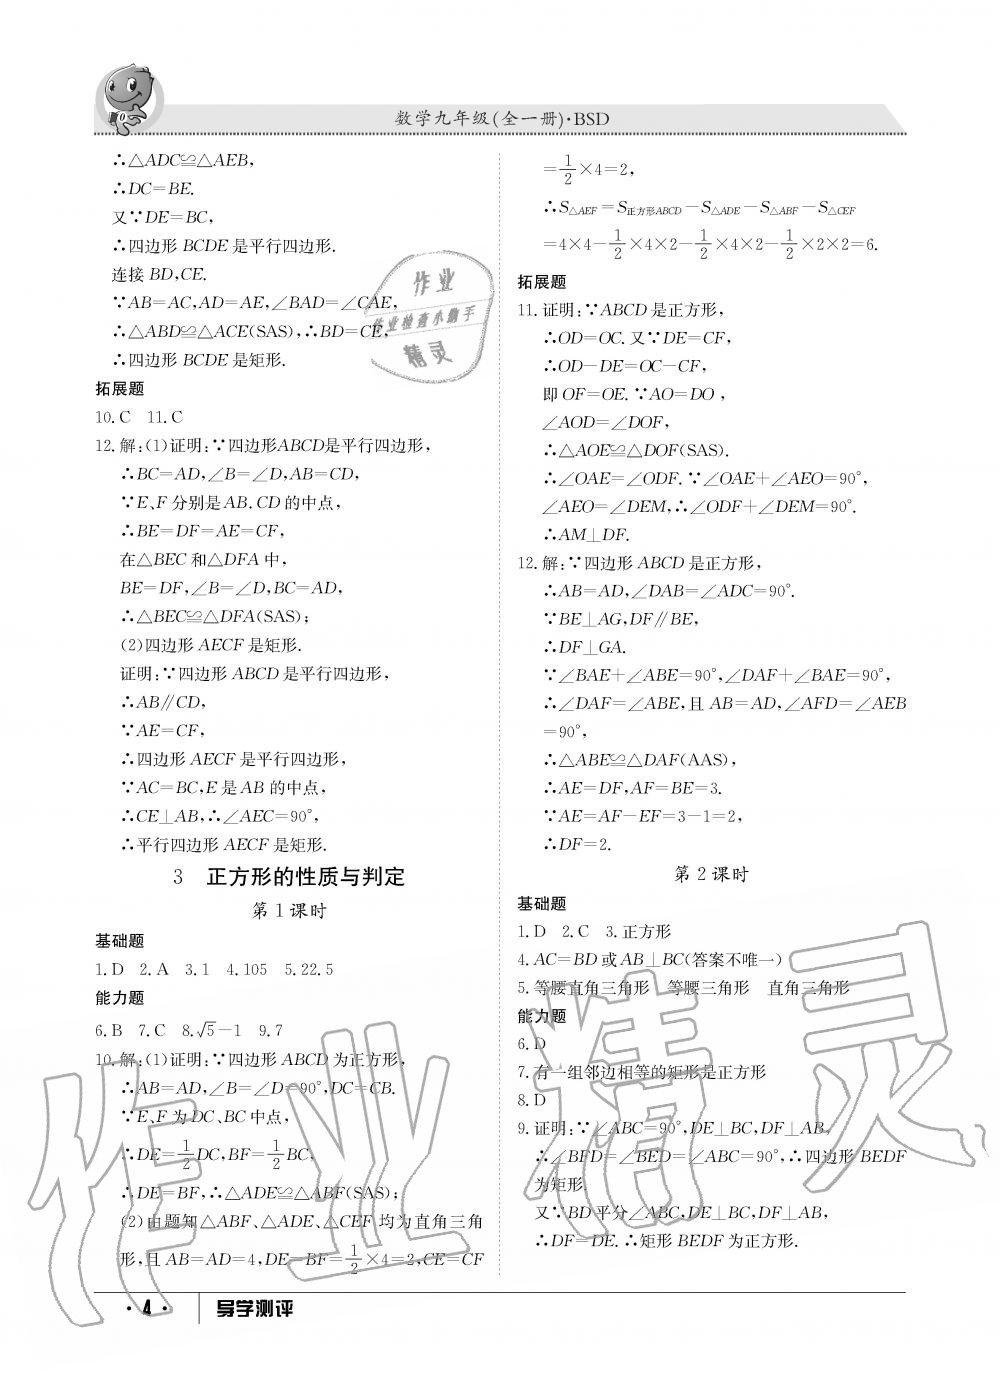 数学九年级(全一册)·BSD
∴△ADC≌△AEB,
∴DC=BE.
又∵DE=BC,
∴四边形 BCDE 是平行四边形.
连接 BD,CE.
∵AB=AC,AD=AE,∠BAD=∠CAE,
∴△ABD≌△ACE(SAS),∴BD=CE,
∴四边形 BCDE 是矩形.
拓展题
10.C 11.C
12.解:(1)证明:∵四边形ABCD是平行四边形,
∴BC=AD,∠B=∠D,AB=CD,
∵E、F 分别是 AB.CD 的中点,
∴BE=DF=AE=CF,
在△BEC 和△DFA 中,
BE=DF,∠B=∠D,BC=AD,
∴△BEC≌△DFA(SAS);
(2)四边形 AECF 是矩形.
证明:∵四边形 ABCD 是平行四边形,
∴AB∥CD,
∵AE=CF,
∴四边形 AECF 是平行四边形,
∵AC=BC,E 是 AB 的中点,
∴CE⊥AB,∴∠AEC=90°,
∴平行四边形 AECF 是矩形.
3 正方形的性质与判定
第 1 课时
基础题
1.D 2.A 3.1 4.105 5.22.5
能力题
6.B 7.C 8.√5-1 9.7
10.解:(1)证明:∵四边形 ABCD 为正方形,
∴AB=AD,∠B=∠D=90°,DC=CB.
∵E、F 为 DC、BC 中点,
∴DE=1/2DC,BF=1/2BC,
∴DE=BF,∴△ADE≌△ABF(SAS);
(2)由题知△ABF、△ADE、△CEF 均为直角三角
形,且 AB=AD=4,DE=BF=1/2×4=2,CE=CF
=1/2×4=2,
∴S△AEF=S正方形ABCD-S△ADE-S△ABF-S△CEF
=4×4-1/2×4×2-1/2×4×2-1/2×2×2=6.
拓展题
11.证明:∵ABCD 是正方形,
∴OD=OC.又∵DE=CF,
∴OD-DE=OC-CF,
即 OF=OE.∵AO=DO ,
∠AOD=∠DOF,
∴△AOE≌△DOF(SAS).
∴∠OAE=∠ODF.∵∠OAE+∠AEO=90°,
∠AEO=∠DEM,∴∠ODF+∠DEM=90°.
∴AM⊥DF.
12.解:∵四边形 ABCD 是正方形,
∴AB=AD,∠DAB=∠ADC=90°.
∵BE⊥AG,DF∥BE,
∴DF⊥GA.
∵∠BAE+∠ABE=90°,∠DAF+∠BAE=90°,
∴∠DAF=∠ABE,且 AB=AD,∠AFD=∠AEB
=90°,
∴△ABE≌△DAF(AAS),
∴AE=DF,AF=BE=3.
∵AE=AF-EF=3-1=2,
∴DF=2.
第 2 课时
基础题
1.D 2.C 3.正方形
4.AC=BD 或 AB⊥BC(答案不唯一)
5.等腰直角三角形 等腰三角形 直角三角形
能力题
6.D
7.有一组邻边相等的矩形是正方形
8.D
9.证明:∵∠ABC=90°,DE⊥BC,DF⊥AB,
∴∠BFD=∠BED=∠ABC=90°,∴四边形 BEDF
为矩形
又∵BD平分∠ABC,DE⊥BC,DF⊥AB,
∴DF=DE.∴矩形 BEDF 为正方形.
·4·
导学测评
作业
作业检查小助手
精灵
作业精灵